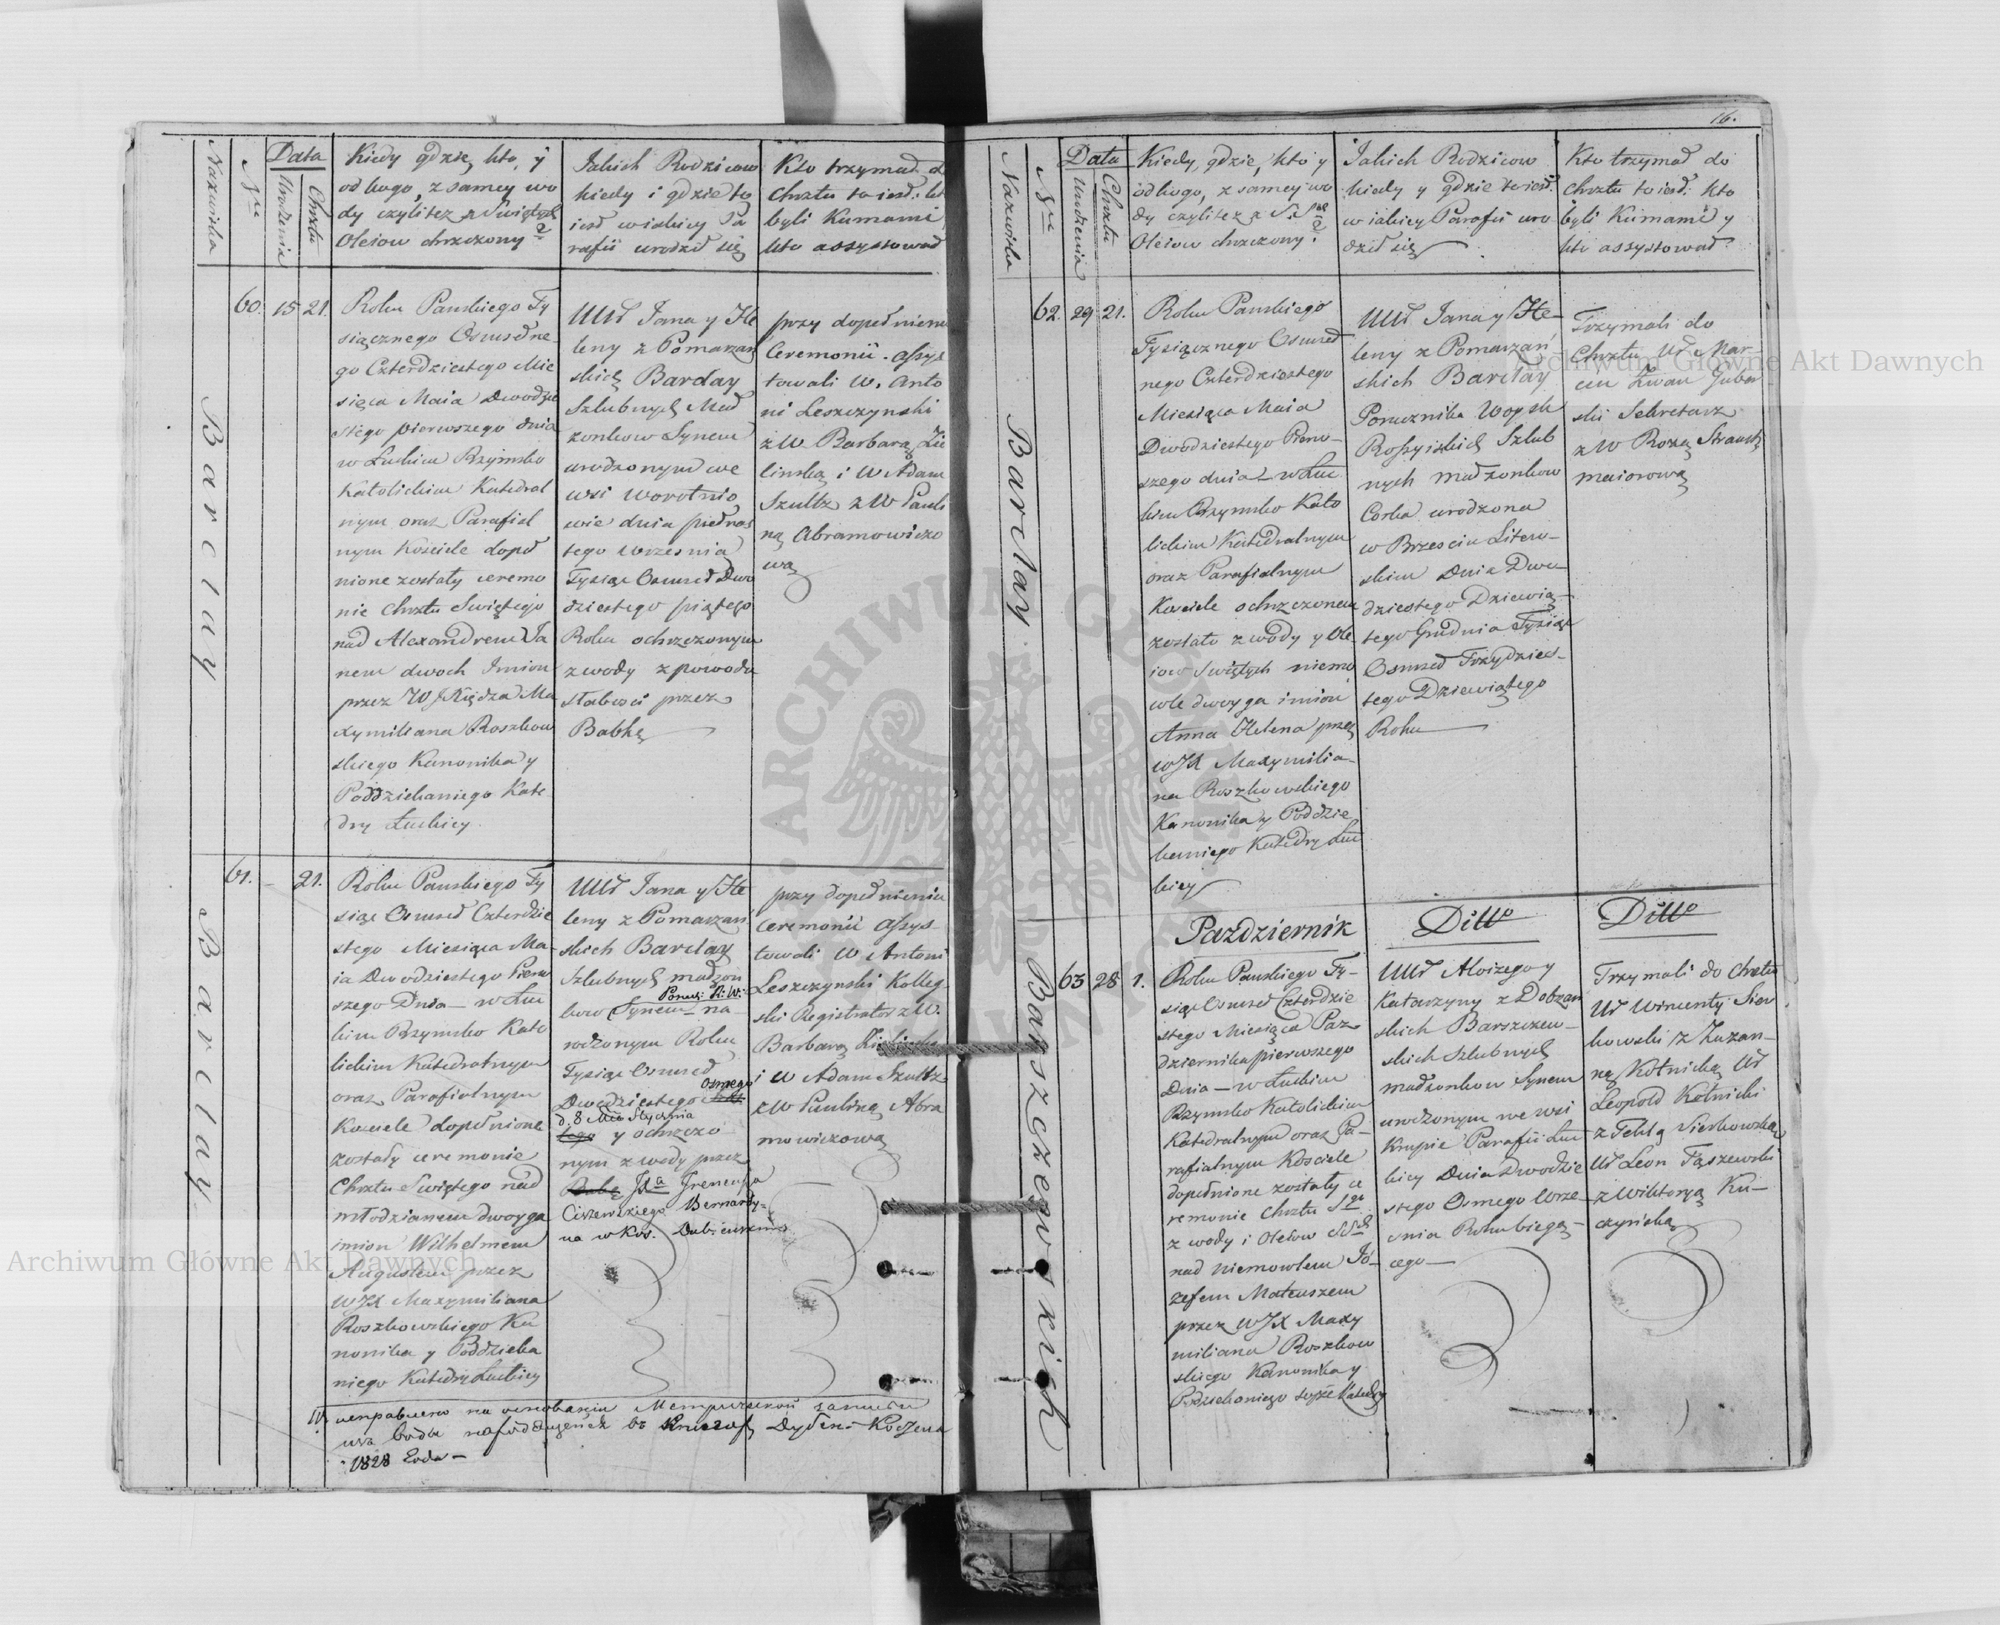 Nazwiska
Nru
Data
Urodzenia
Chrztu
Kiedy gdzie, kto, y
od kogo, z samey wo
dy czyli tez z Swiętych
Oleiow chrzczony?
Jakich Rodzicow
kiedy i gdzie to
iest w iakiey Pa
rafii urodził się
Kto trzymał d
Chrztu to iest: kt
byli Kumami,
kto assystował
Barclay
60.
15
21.
Roku Panskiego Ty
siącznego Osmsetne
go Czterdziestego Mie
siąca Maia Dwodzie
stego pierwszego dnia
w Łuckim Rzymsko
Katolickim Katedral
nym oraz Parafial
nym Kościele dopeł
nione zostały ceremo
nie Chrztu Swiętego
nad Alexandrem Ja
nem dwoch Imion
przez WJKsiędza Ma
xymiliana Roszkow
skiego Kanonika y
Poddziekaniego Kate
dry Łuckiey.
UUr Jana y He
leny z Pomarzań
skich Barclay
Szlubnych Mał
zonkow Synem
urodzonym we
wsi Worotnio
wie dnia piętnas
tego Wrzesnia
Tysiąc Osmset Dwu
dziestego piątego
Roku ochrzczonym
z wody z powodu
słabosci przez
Babkę
przy dopełnieniu
Ceremonii assys
towali W. Anto
ni Leszczynski
z W Barbarą Zie
linską i W Adam
Szultz z W Pauli
ną Abramowiczo
wą
Barclay
61.
21.
Roku Panskiego Ty
siąc Osmset Czterdzie
stego Miesiąca Ma-
ia Dwodziestego Pierw
szego Dnia - w Łuc
kim Rzymsko Kato
lickim Katedralnym
oraz Parafialnym
Kosciele dopełnione
zostały ceremonie
Chrztu Swiętego nad
młodzianem dwoyga
imion Wilhelmem
Augustem przez
WJX Maxymiliana
Roszkowskiego Ka
nonika y Poddzieka
niego Katedry Łuckiey
UUr Jana y He
leny z Pomarzań
skich Barclay
Szlubnych małzon
kow Synem na-
rodzonym Roku
Tysiąc Osmset
Dwudziestego osmego
d. 8 Mca Stycznia
tego y ochrzczo
nym z wody przez
Babę JXa Ireneusza
Ciszewskiego Bernardy-
na w Kos. Dubienskim
przy dopełnieniu
Ceremonii assys
towali W Antoni
Leszczynski Kolleg
ski Registrator z W.
Barbarą Zielinską
i W Adam Szultz
z W Pauliną Abra
mowiczową
1828 Года -
16.
Nazwiska
Nru
Data
Urodzenia
Chrztu
Kiedy, gdzie, kto y
od kogo, z samey wo
dy czyli tez z S. Sch
Oleiow chrzczony?
Jakich Rodzicow
kiedy y gdzie to iest
w iakiey Parafii uro
dził się
Kto trzymał do
Chrztu to iest: kto
byli Kumami y
kto assystował
Barclay
62.
29
21.
Roku Panskiego
Tysiącznego Osmset
nego Czterdziestego
Miesiąca Maia
Dwodziestego Pierw-
szego dnia - w Łuc
kim Rzymsko Kato
lickim Katedralnym
oraz Parafialnym
Kosciele ochrzczonem
zostało z wody y Ole
iow Swiętych niemo
wle dwoyga imion
Anna Helena przez
WJX Maxymilia-
na Roszkowskiego
Kanonika y Poddzie
kaniego Katedry Łuc
kiey
UUr Jana y He-
leny z Pomarzań
skich Barclay
Porucznika Woysk
Rossyiskich Szlub
nych małzonkow
Corka urodzona
w Brzesciu Litew-
skim Dnia Dwu-
dziestego Dziewią-
tego Grudnia Tysiąc
Osmset Trzydzies-
tego Dziewiątego
Roku
Trzymali do
Chrztu Ur Mar-
cin Iwan Guber
ski Sekretarz
z W Rozą
maiorową
Październik
Ditto
Ditto
Barszczewskich
63
28
1.
Roku Panskiego Ty-
siąc Osmset Czterdzie
stego Miesiąca Paz-
dziernika pierwszego
Dnia - w Łuckim
Rzymsko Katolickim
Katedralnym oraz Pa-
rafialnym Kosciele
dopełnione zostały ce
remonie Chrztu Sgo
z wody i Oleiow SSch
nad niemowlem Jó-
zefem Mateuszem
przez WJX Maxy
miliana Roszkow
skiego Kanonika y
Podziekaniego teyże Katedry
UUr Aloizego y
Katarzyny z Dobrzań
skich Barszczew-
skich Szlubnych
małzonkow Synem
urodzonym we wsi
Krupie Parafii Łuc
kiey Dnia Dwodzie
stego Osmego Wrze-
snia Roku bieżą-
cego
Trzymali do Chrztu
Ur Wincenty Sier
kowski z Zuzan-
ną Kotnicką Ur
Leopold Kotnicki
z Teklą Sierkowską
Ur Leon Tąszewski
z Wiktoryą Ku-
czyńską
Archiwum Główne Akt Dawnych
Archiwum Główne Akt Dawnych